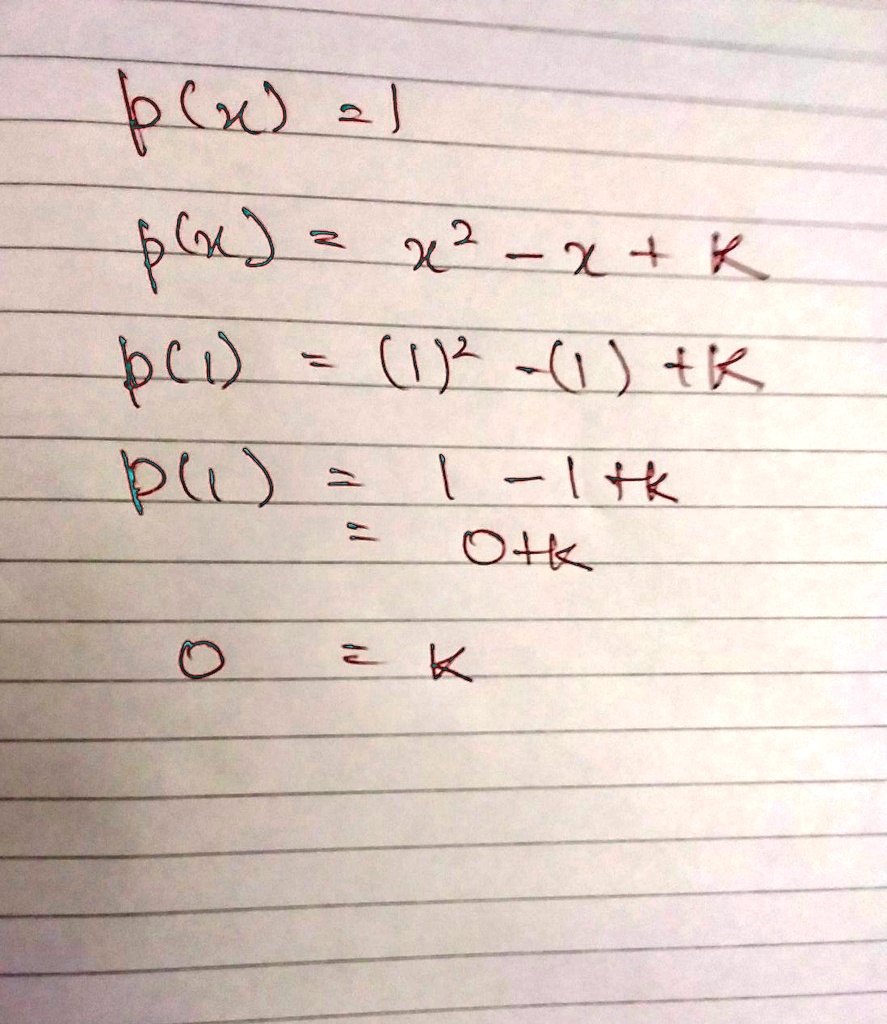 p(x) = 1
p(x) = x² - x + k
p(1) = (1)² -(1) +k
p(1) = 1 - 1 +k
= 0+k
0 = k